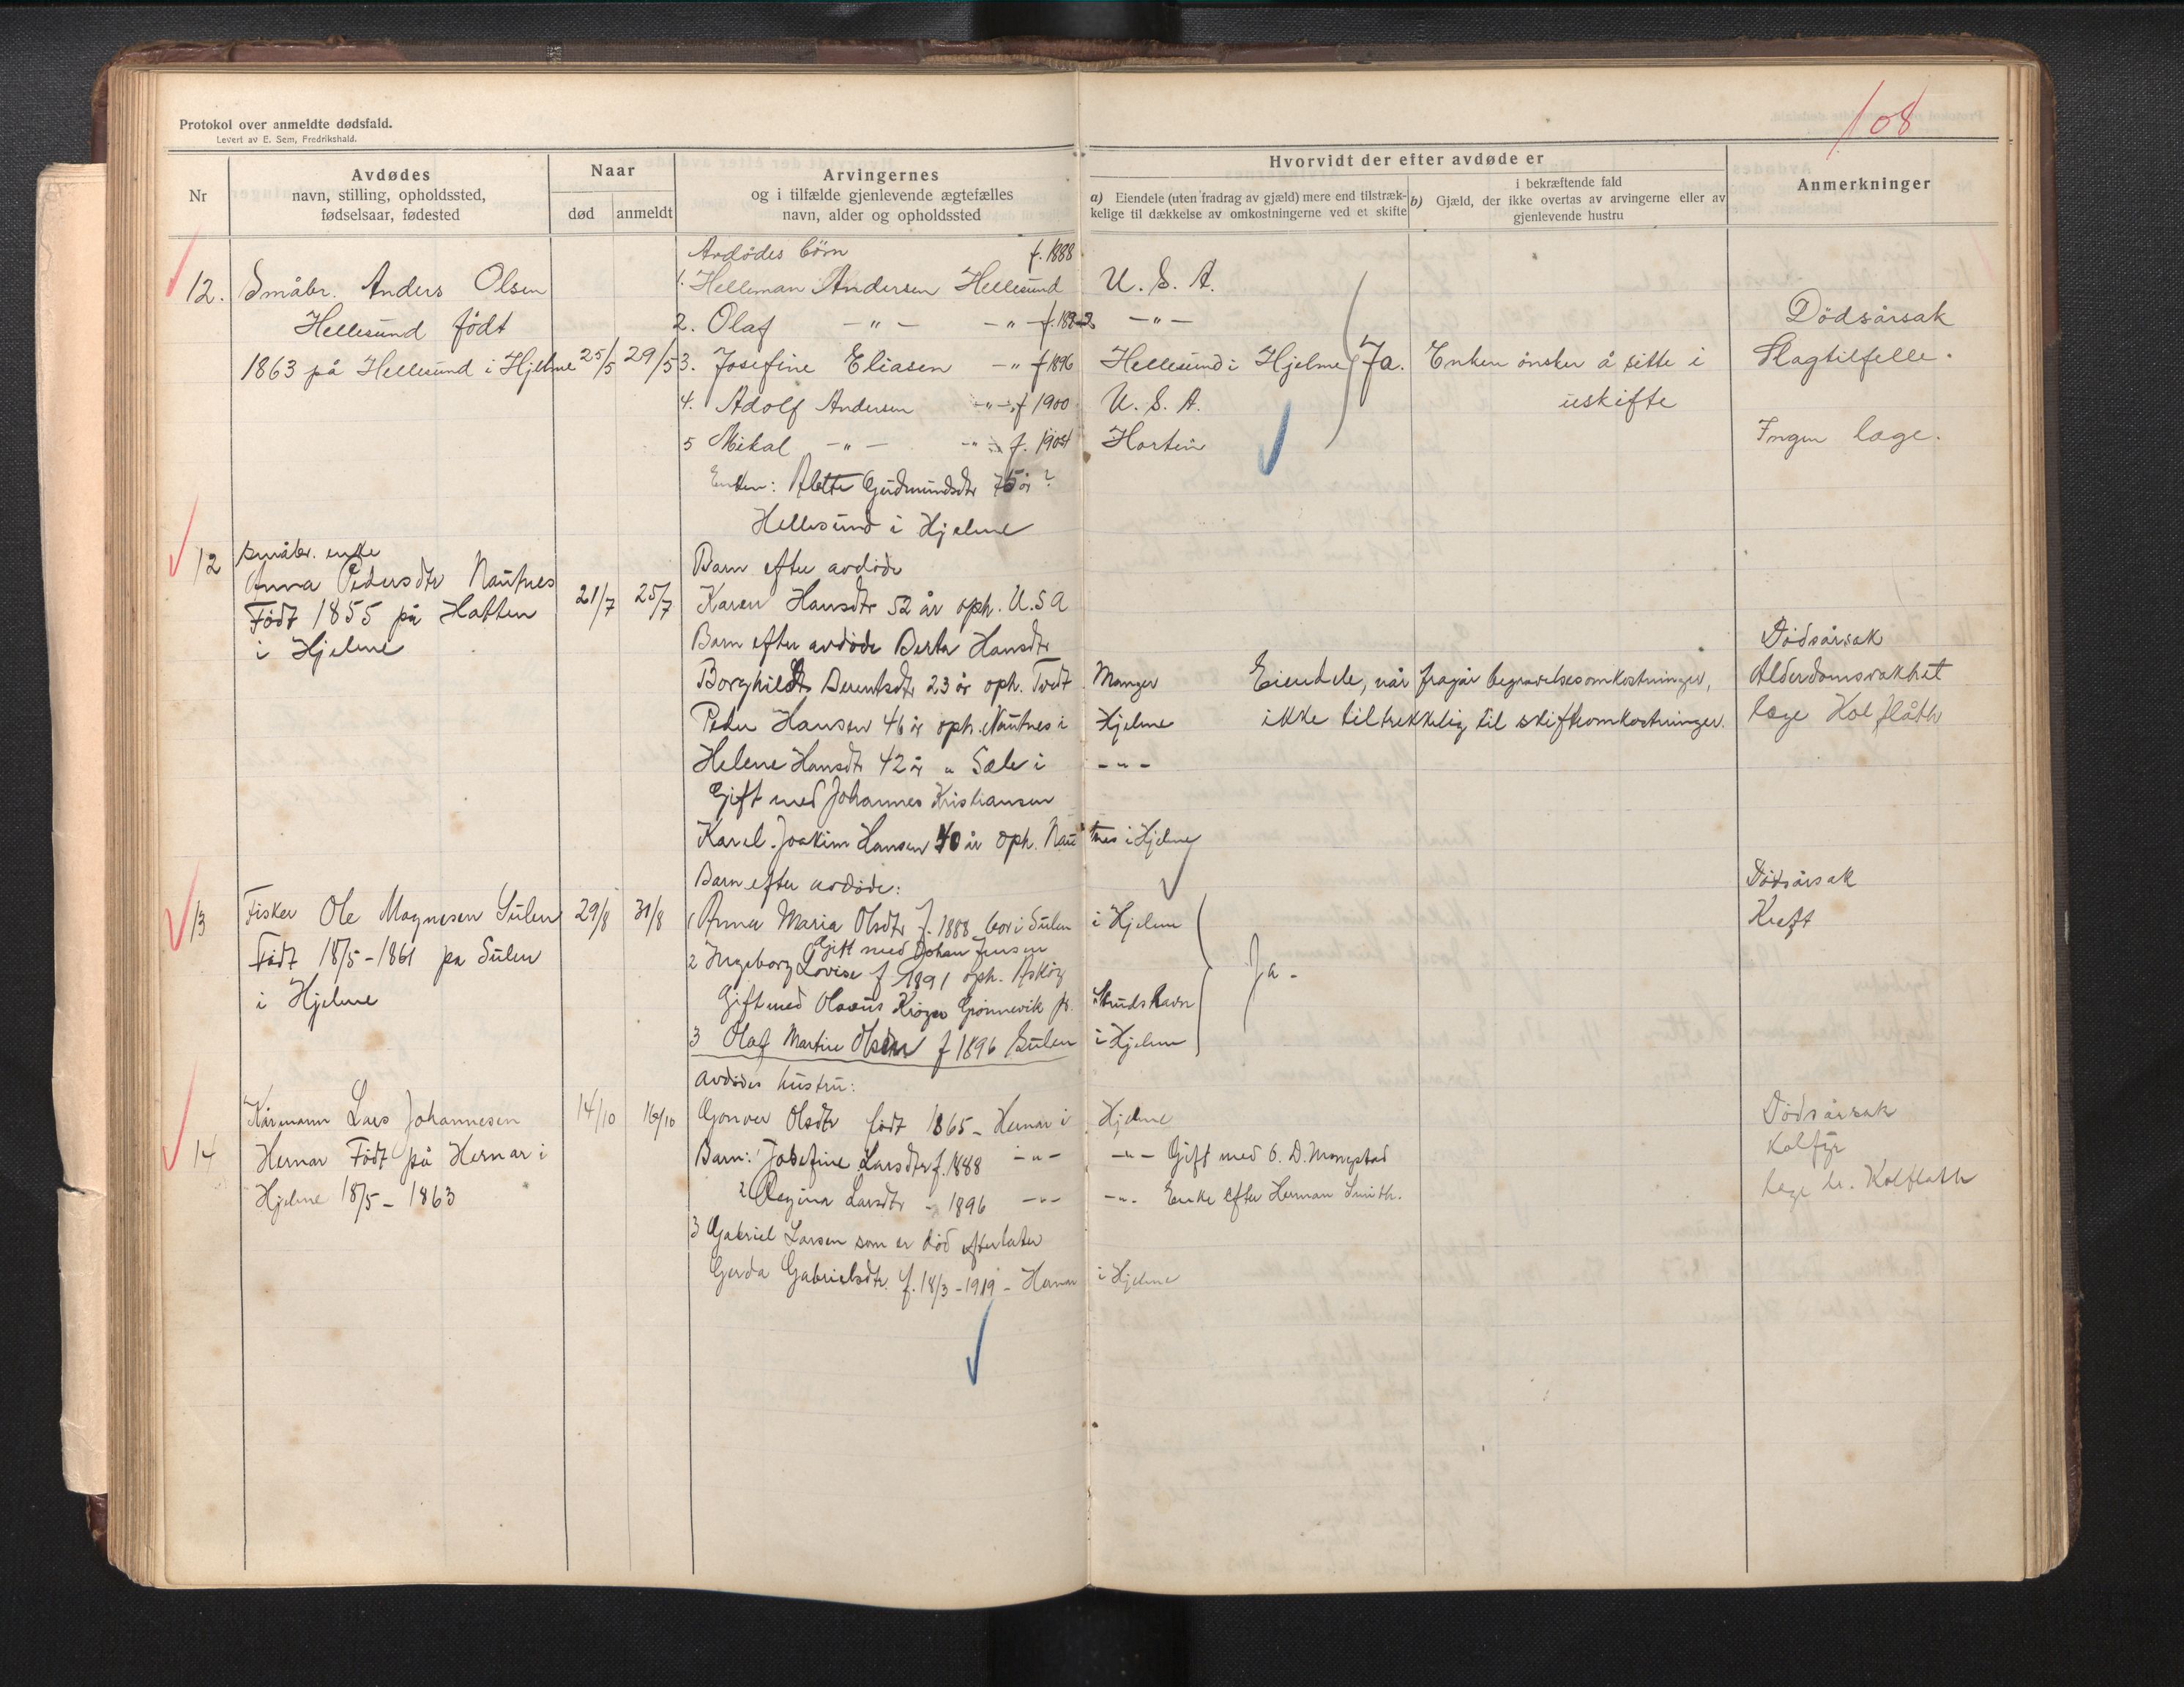 108
Protokol over anmeldte dødsfald.
Levert av E. Sem, Fredrikshald.
Nr
Avdødes
navn, stilling, opholdssted,
fødselsaar, fødested
Naar
død
anmeldt
Arvingernes
og i tilfælde gjenlevende ægtefælles
navn, alder og opholdssted
Hvorvidt der efter avdøde er
a) Eiendele (uten fradrag av gjæld) mere end tilstræk-
kelige til dækkelse av omkostningerne ved et skifte
b) i bekræftende fald
Gjæld, der ikke overtas av arvingerne eller av
gjenlevende hustru
Anmerkninger
12. Småbr. Anders Olsen
Hellesund født
1863 på Hellesund i Hjelme
25/5
29/5
Avdødes børn
1. Helleman Andersen Hellesund f. 1888 U. S. A.
2. Olaf -"- -"- f. 1892 -"-
3. Josefine Eliasen -"- f 1896 Hellesund i Hjelme
4. Adolf Andersen -"- f 1900 U. S. A.
5 Mikal -"- -"- f. Horten
Enken: Alette Gudmundsdtr 75 år ?
Hellesund i Hjelme
Ja.
Enken ønsker å sitte i
uskifte
Dødsårsak
Slagtilfelle.
Ingen læge.
12 småbr. enke
Anna Pedersdtr Nautnes
Født 1855 på Hatten
i Hjelme
21/7
25/7
Barn efter avdøde
Karen Hansdtr 52 år oph. U.S A
Barn efter avdøde Berta Hansdtr
Borghild Berentsdtr 23 år oph. Tvedt Manger
Peder Hansen 46 år oph. Nautnes i Hjelme
Helene Hansdtr 42 år " Sæle i -"-
Gift med Johannes Kristiansen
Karel. Joakim Hansen 40 år oph. Nautnes i Hjelme
Eiendele, når fragår begravelsesomkostninger,
ikke tiltrekkelig til skifteomkostninger.
Dødsårsak
Alderdomsvakhet
læge Kolflåth
13 Fisker Ole Magnesen Sulen
Født 18/5-1861 på Sulen
i Hjelme
29/8
31/8
Barn efter avdøde:
1 Anna Maria Olsdtr f. 1888 bor i Sulen i Hjelme
Gift med Johan Jensen
2 Ingeborg Lovise f 1891 oph. Askøy
Gift med Olaus Krøger Grønnevik Strudshavn
3 Olaf Martin Olsen f 1896 Sulen i Hjelme
Ja -
Dødsårsak
Kreft
14 Kårmann Lars Johannesen
Hernar Født på Hernar i
Hjelme 18/5 - 1863
14/10
16/10
Avdødes hustru:
Gonver Olsdtr født 1865 - Hernar i Hjelme
Barn: 1 Josefine Larsdtr f. 1888 -"- -"- Gift med O. D. Mongstad
2 Regina Larsdtr - 1896 -"- -"- Enke efter Herman Smith.
3 Gabriel Larsen som er død efterlater
Gerda Gabrielsdtr. f. 18/3-1919 - Hernar i Hjelme
Dødsårsak
læge hr. Kolflath